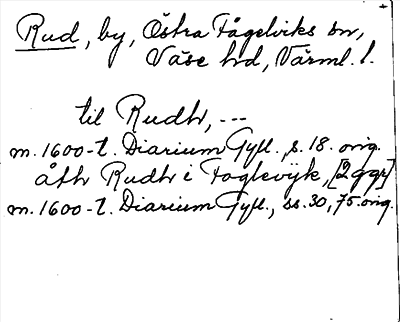 +
Rud, by, Östra Fågelviks sn,
Väse hd, Värml. l.
til Rudh, ---
m. 1600-t. Diarium Gyll., s. 18. orig.
åth Rudh i Foglevijk, [2 ggr]
m. 1600-t. Diarium Gyll., ss. 30, 75. orig.